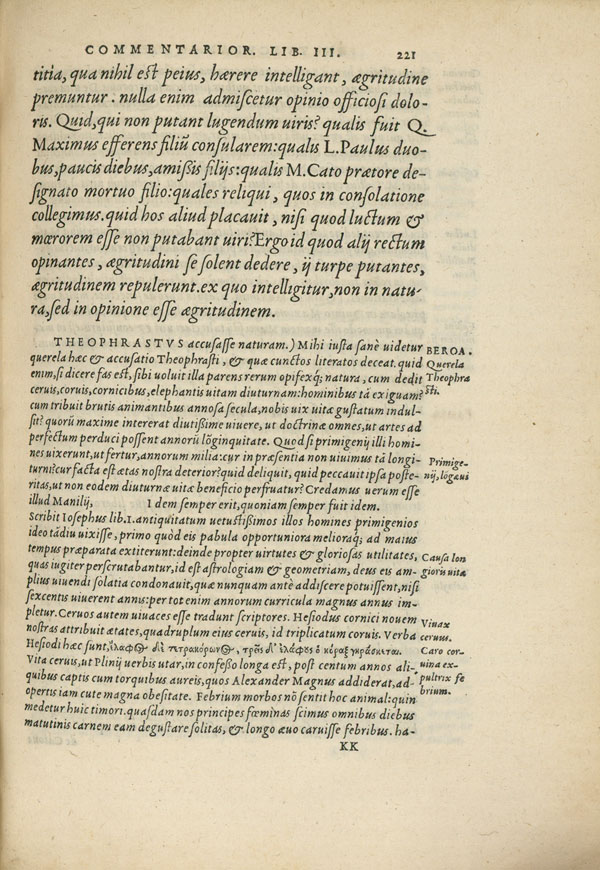 COMMENTARIOR. LIB. III. 221
titia, qua nihil est peius, hærere intelligant, ægritudine
premuntur. nulla enim admiscetur opinio officiosi dolo-
ris. Quid, qui non putant lugendum uiris? qualis fuit Q.
Maximus efferens filiũ consularem: qualis L. Paulus duo-
bus, paucis diebus, amissis filijs: qualis M. Cato prætore de-
signato mortuo filio: quales reliqui, quos in consolatione
collegimus. quid hos aliud placauit, nisi quod luctum &
mœrorem esse non putabant uiri? Ergo id quod alij rectum
opinantes, ægritudini se solent dedere, ij turpe putantes,
ægritudinem repulerunt. ex quo intelligitur, non in natu-
ra, sed in opinione esse ægritudinem.
THEOPHRASTVS accusasse naturam.) Mihi iusta sanè uidetur
querela hæc & accusatio Theophrasti, & quæ cunctos literatos deceat. quid
enim, si dicere fas est, sibi uoluit illa parens rerum opifexq; natura, cum dedit
ceruis, coruis, cornicibus, elephantis uitam diuturnam: hominibus tã exiguam?
cum tribuit brutis animantibus annosa secula, nobis uix uitæ gustatum indul-
sit? quorũ maxime intererat diutissime uiuere, ut doctrinæ omnes, ut artes ad
perfectum perduci possent annorũ lõginquitate. Quod si primigenij illi homi-
nes uixerunt, ut fertur, annorum milia: cur in præsentia non uiuimus tã longi-
turni? cur facta est ætas nostra deterior? quid deliquit, quid peccauit ipsa poste-
ritas, ut non eodem diuturnæ uitæ beneficio perfruatur? Credamus uerum esse
illud Manilij, Idem semper erit, quoniam semper fuit idem.
Scribit Iosephus lib. 1. antiquitatum uetustissimos illos homines primigenios
ideo tãdiu uixisse, primo quòd eis pabula opportuniora melioraq; ad maius
tempus præparata extiterunt: deinde propter uirtutes & gloriosas utilitates,
quas iugiter perscrutabantur, id est astrologiam & geometriam, deus eis am-
plius uiuendi solatia condonauit, quæ nunquam antè addiscere potuissent, nisi
sexcentis uiuerent annis: per tot enim annorum curricula magnus annus im-
pletur. Ceruos autem uiuaces esse tradunt scriptores. Hesiodus cornici nouem
nostras attribuit ætates, quadruplum eius ceruis, id triplicatum coruis. Verba
Hesiodi hæc sunt, ἐλαφῶν δὲ τετρακόρωνῶν, τρεῖς δ' ἐλάφους ὁ κόραξ γηράσκεται.
Vita ceruis, ut Plinij uerbis utar, in confesso longa est, post centum annos ali-
quibus captis cum torquibus aureis, quos Alexander Magnus addiderat, ad-
opertis iam cute magna obesitate. Febrium morbos nõ sentit hoc animal: quin
medetur huic timori. quasdam nos principes fœminas scimus omnibus diebus
matutinis carnem eam degustare solitas, & longo æuo caruisse febribus. ha-
KK
BEROA.
Querela
Theophra
sti.
Primige-
nij, lõgæui
Causa lon
gioris uitæ
Viuax
ceruus.
Caro cor-
uina ex-
pultrix fe
brium.